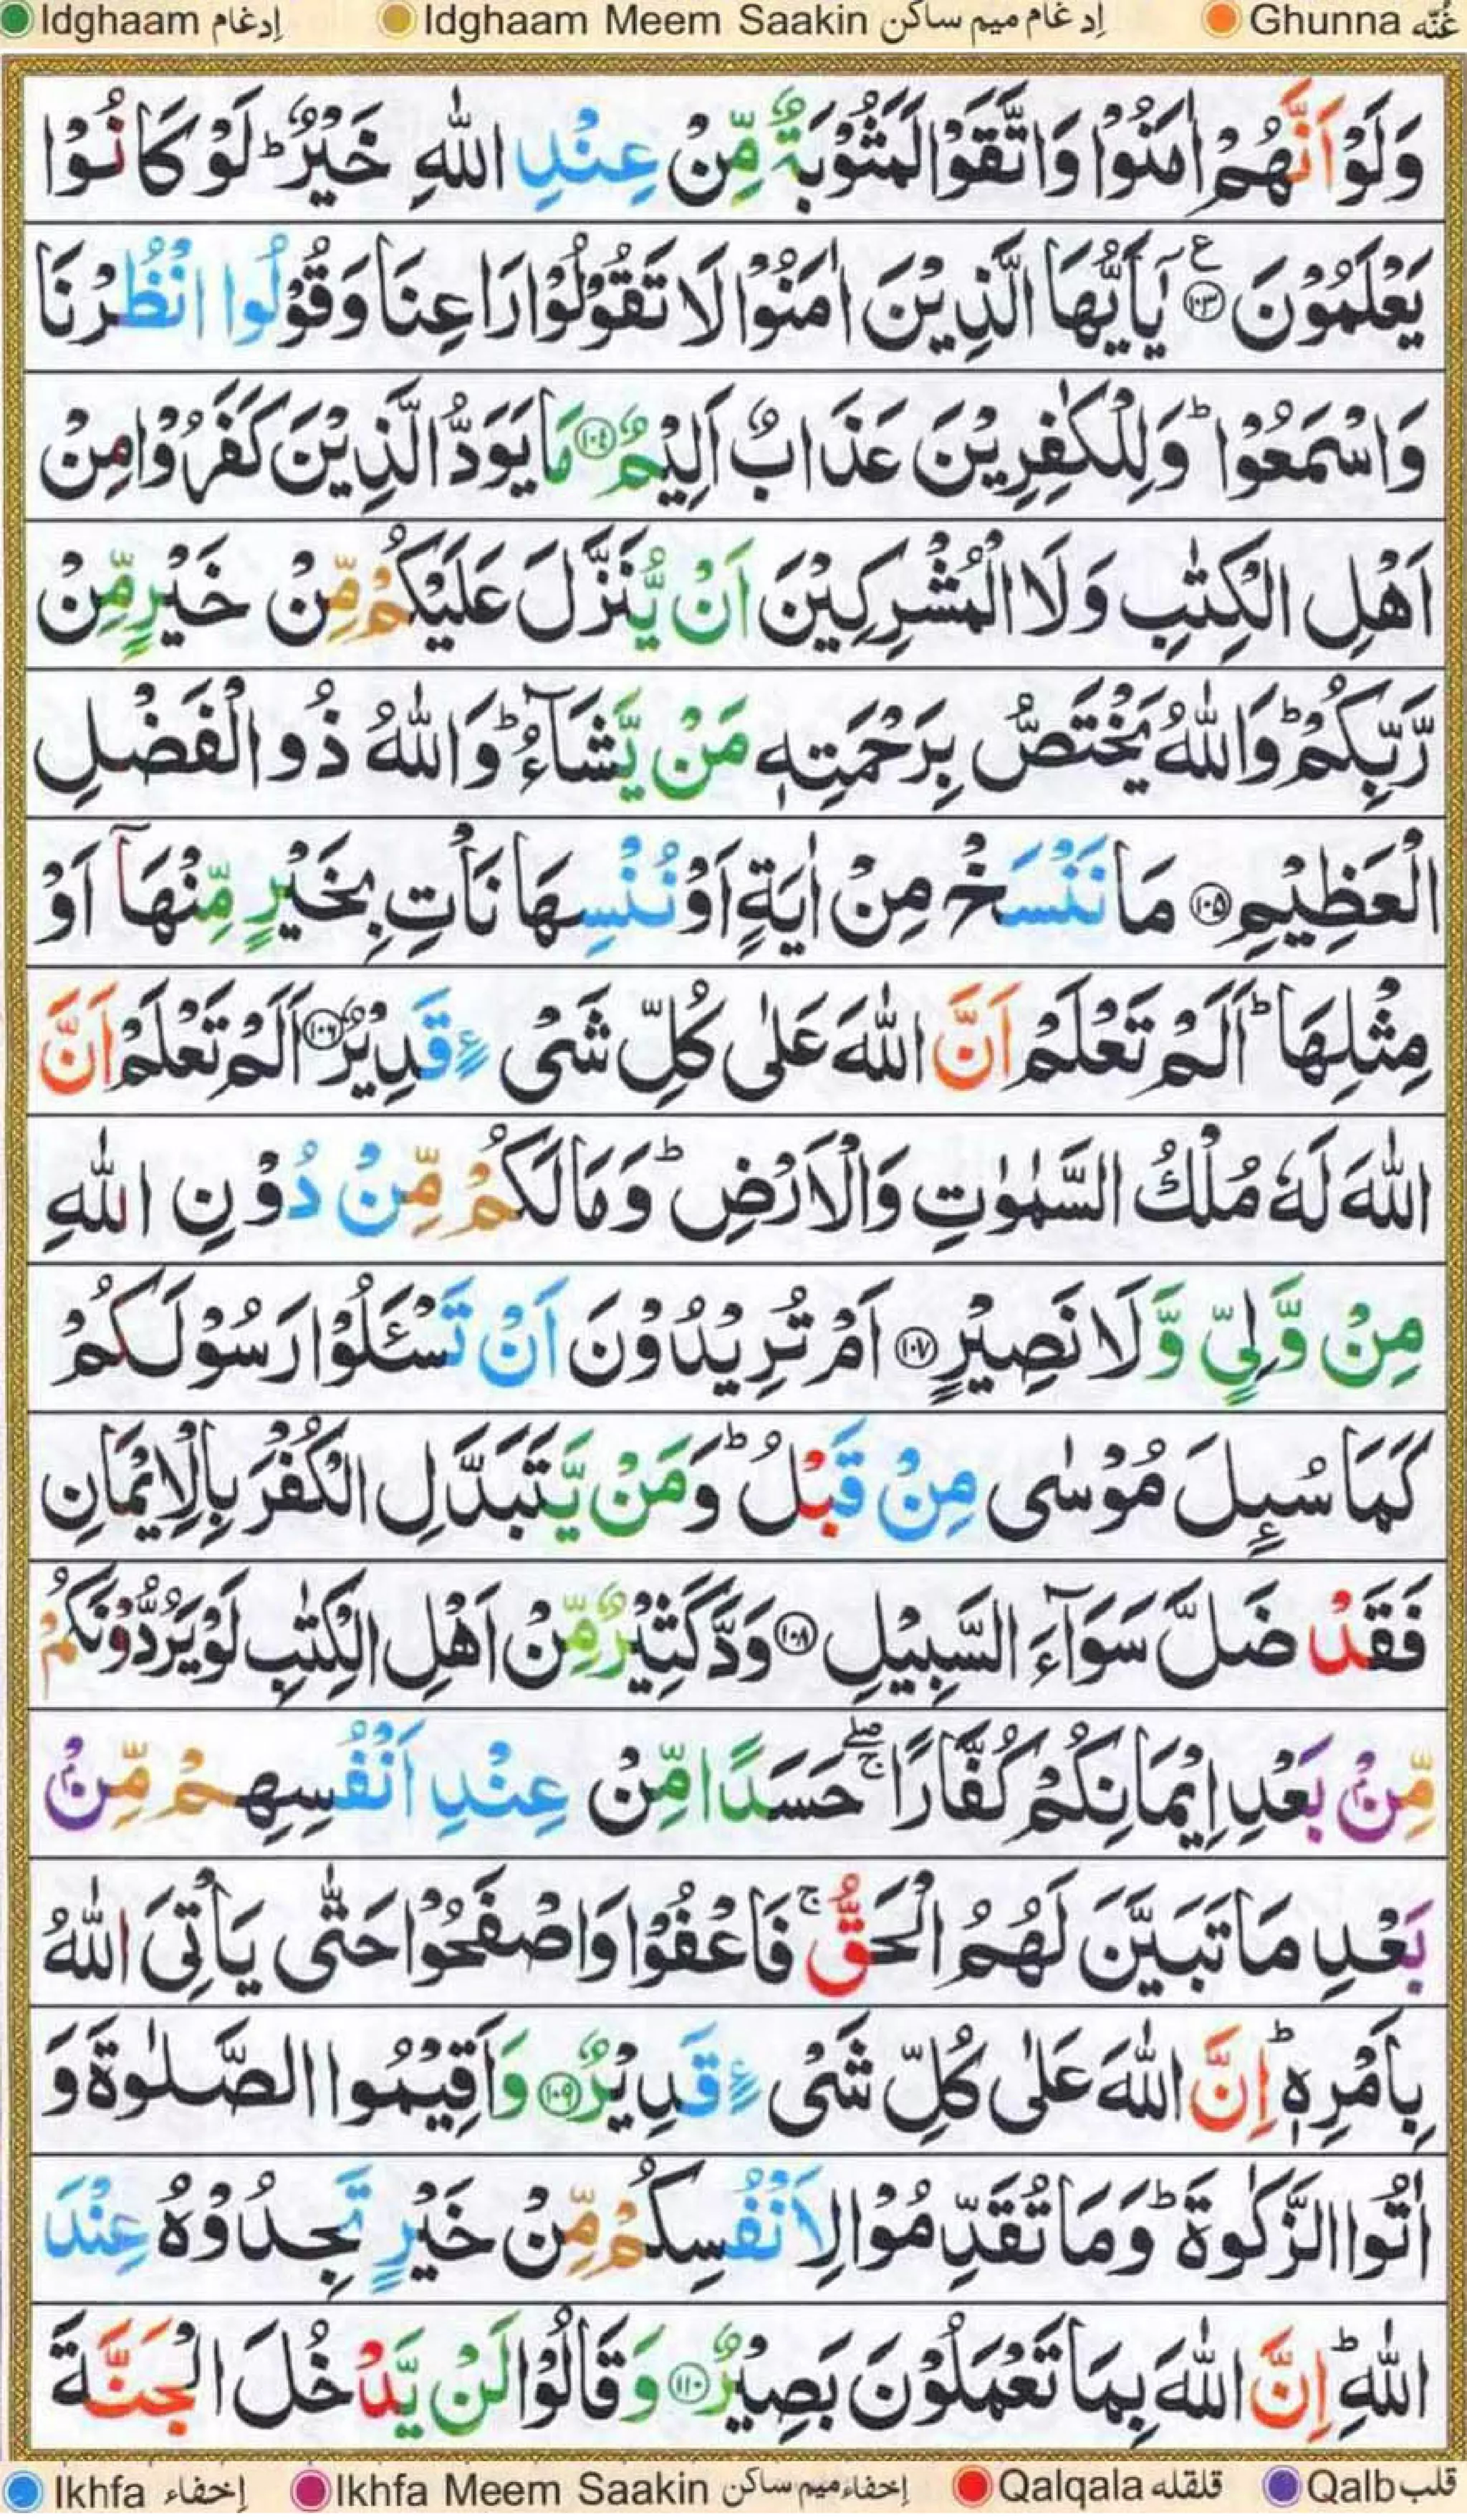 Idghaam إدغام Idghaam Meem Saakin إدغام ميم ساكن Ghunna غُنَّه
وَلَوْ اَنَّهُمْ اٰمَنُوْا وَاتَّقَوْا لَمَثُوْبَةٌ مِّنْ عِنْدِ اللّٰهِ خَيْرٌ ؕ لَوْ كَانُوْا
يَعْلَمُوْنَ ۧ‏﴿۱۰۳﴾ يٰٓاَيُّهَا الَّذِيْنَ اٰمَنُوْا لَا تَقُوْلُوْا رَاعِنَا وَقُوْلُوا انْظُرْنَا
وَاسْمَعُوْا ؕ وَلِلْكٰفِرِيْنَ عَذَابٌ اَلِيْمٌ ﴿۱۰٤﴾ مَا يَوَدُّ الَّذِيْنَ كَفَرُوْا مِنْ
اَهْلِ الْكِتٰبِ وَلَا الْمُشْرِكِيْنَ اَنْ يُّنَزَّلَ عَلَيْكُمْ مِّنْ خَيْرٍ مِّنْ
رَّبِّكُمْ ؕ وَاللّٰهُ يَخْتَصُّ بِرَحْمَتِهٖ مَنْ يَّشَآءُ ؕ وَاللّٰهُ ذُو الْفَضْلِ
الْعَظِيْمِ ﴿۱۰۵﴾ مَا نَنْسَخْ مِنْ اٰيَةٍ اَوْ نُنْسِهَا نَاْتِ بِخَيْرٍ مِّنْهَآ اَوْ
مِثْلِهَا ؕ اَلَمْ تَعْلَمْ اَنَّ اللّٰهَ عَلٰى كُلِّ شَىْءٍ قَدِيْرٌ ﴿۱۰۶﴾ اَلَمْ تَعْلَمْ اَنَّ
اللّٰهَ لَهٗ مُلْكُ السَّمٰوٰتِ وَالْاَرْضِ ؕ وَمَا لَكُمْ مِّنْ دُوْنِ اللّٰهِ
مِنْ وَّلِىٍّ وَّلَا نَصِيْرٍ ﴿۱۰۷﴾ اَمْ تُرِيْدُوْنَ اَنْ تَسْـَٔلُوْا رَسُوْلَكُمْ
كَمَا سُٮِٕلَ مُوْسٰى مِنْ قَبْلُ ؕ وَمَنْ يَّتَبَدَّلِ الْكُفْرَ بِالْاِيْمَانِ
فَقَدْ ضَلَّ سَوَآءَ السَّبِيْلِ ﴿۱۰۸﴾ وَدَّ كَثِيْرٌ مِّنْ اَهْلِ الْكِتٰبِ لَوْ يَرُدُّوْنَكُمْ
مِّنْۢ بَعْدِ اِيْمَانِكُمْ كُفَّارًا ۖۚ حَسَدًا مِّنْ عِنْدِ اَنْفُسِهِمْ مِّنْۢ
بَعْدِ مَا تَبَيَّنَ لَهُمُ الْحَقُّ ۚ فَاعْفُوْا وَاصْفَحُوْا حَتّٰى يَاْتِىَ اللّٰهُ
بِاَمْرِهٖ ؕ اِنَّ اللّٰهَ عَلٰى كُلِّ شَىْءٍ قَدِيْرٌ ﴿۱۰۹﴾ وَاَقِيْمُوا الصَّلٰوةَ وَ
اٰتُوا الزَّكٰوةَ ؕ وَمَا تُقَدِّمُوْا لِاَنْفُسِكُمْ مِّنْ خَيْرٍ تَجِدُوْهُ عِنْدَ
اللّٰهِ ؕ اِنَّ اللّٰهَ بِمَا تَعْمَلُوْنَ بَصِيْرٌ ﴿۱۱۰﴾ وَقَالُوْا لَنْ يَّدْخُلَ الْجَنَّةَ
Ikhfa إخفاء Ikhfa Meem Saakin إخفاء ميم ساكن Qalqala قلقله Qalb قلب